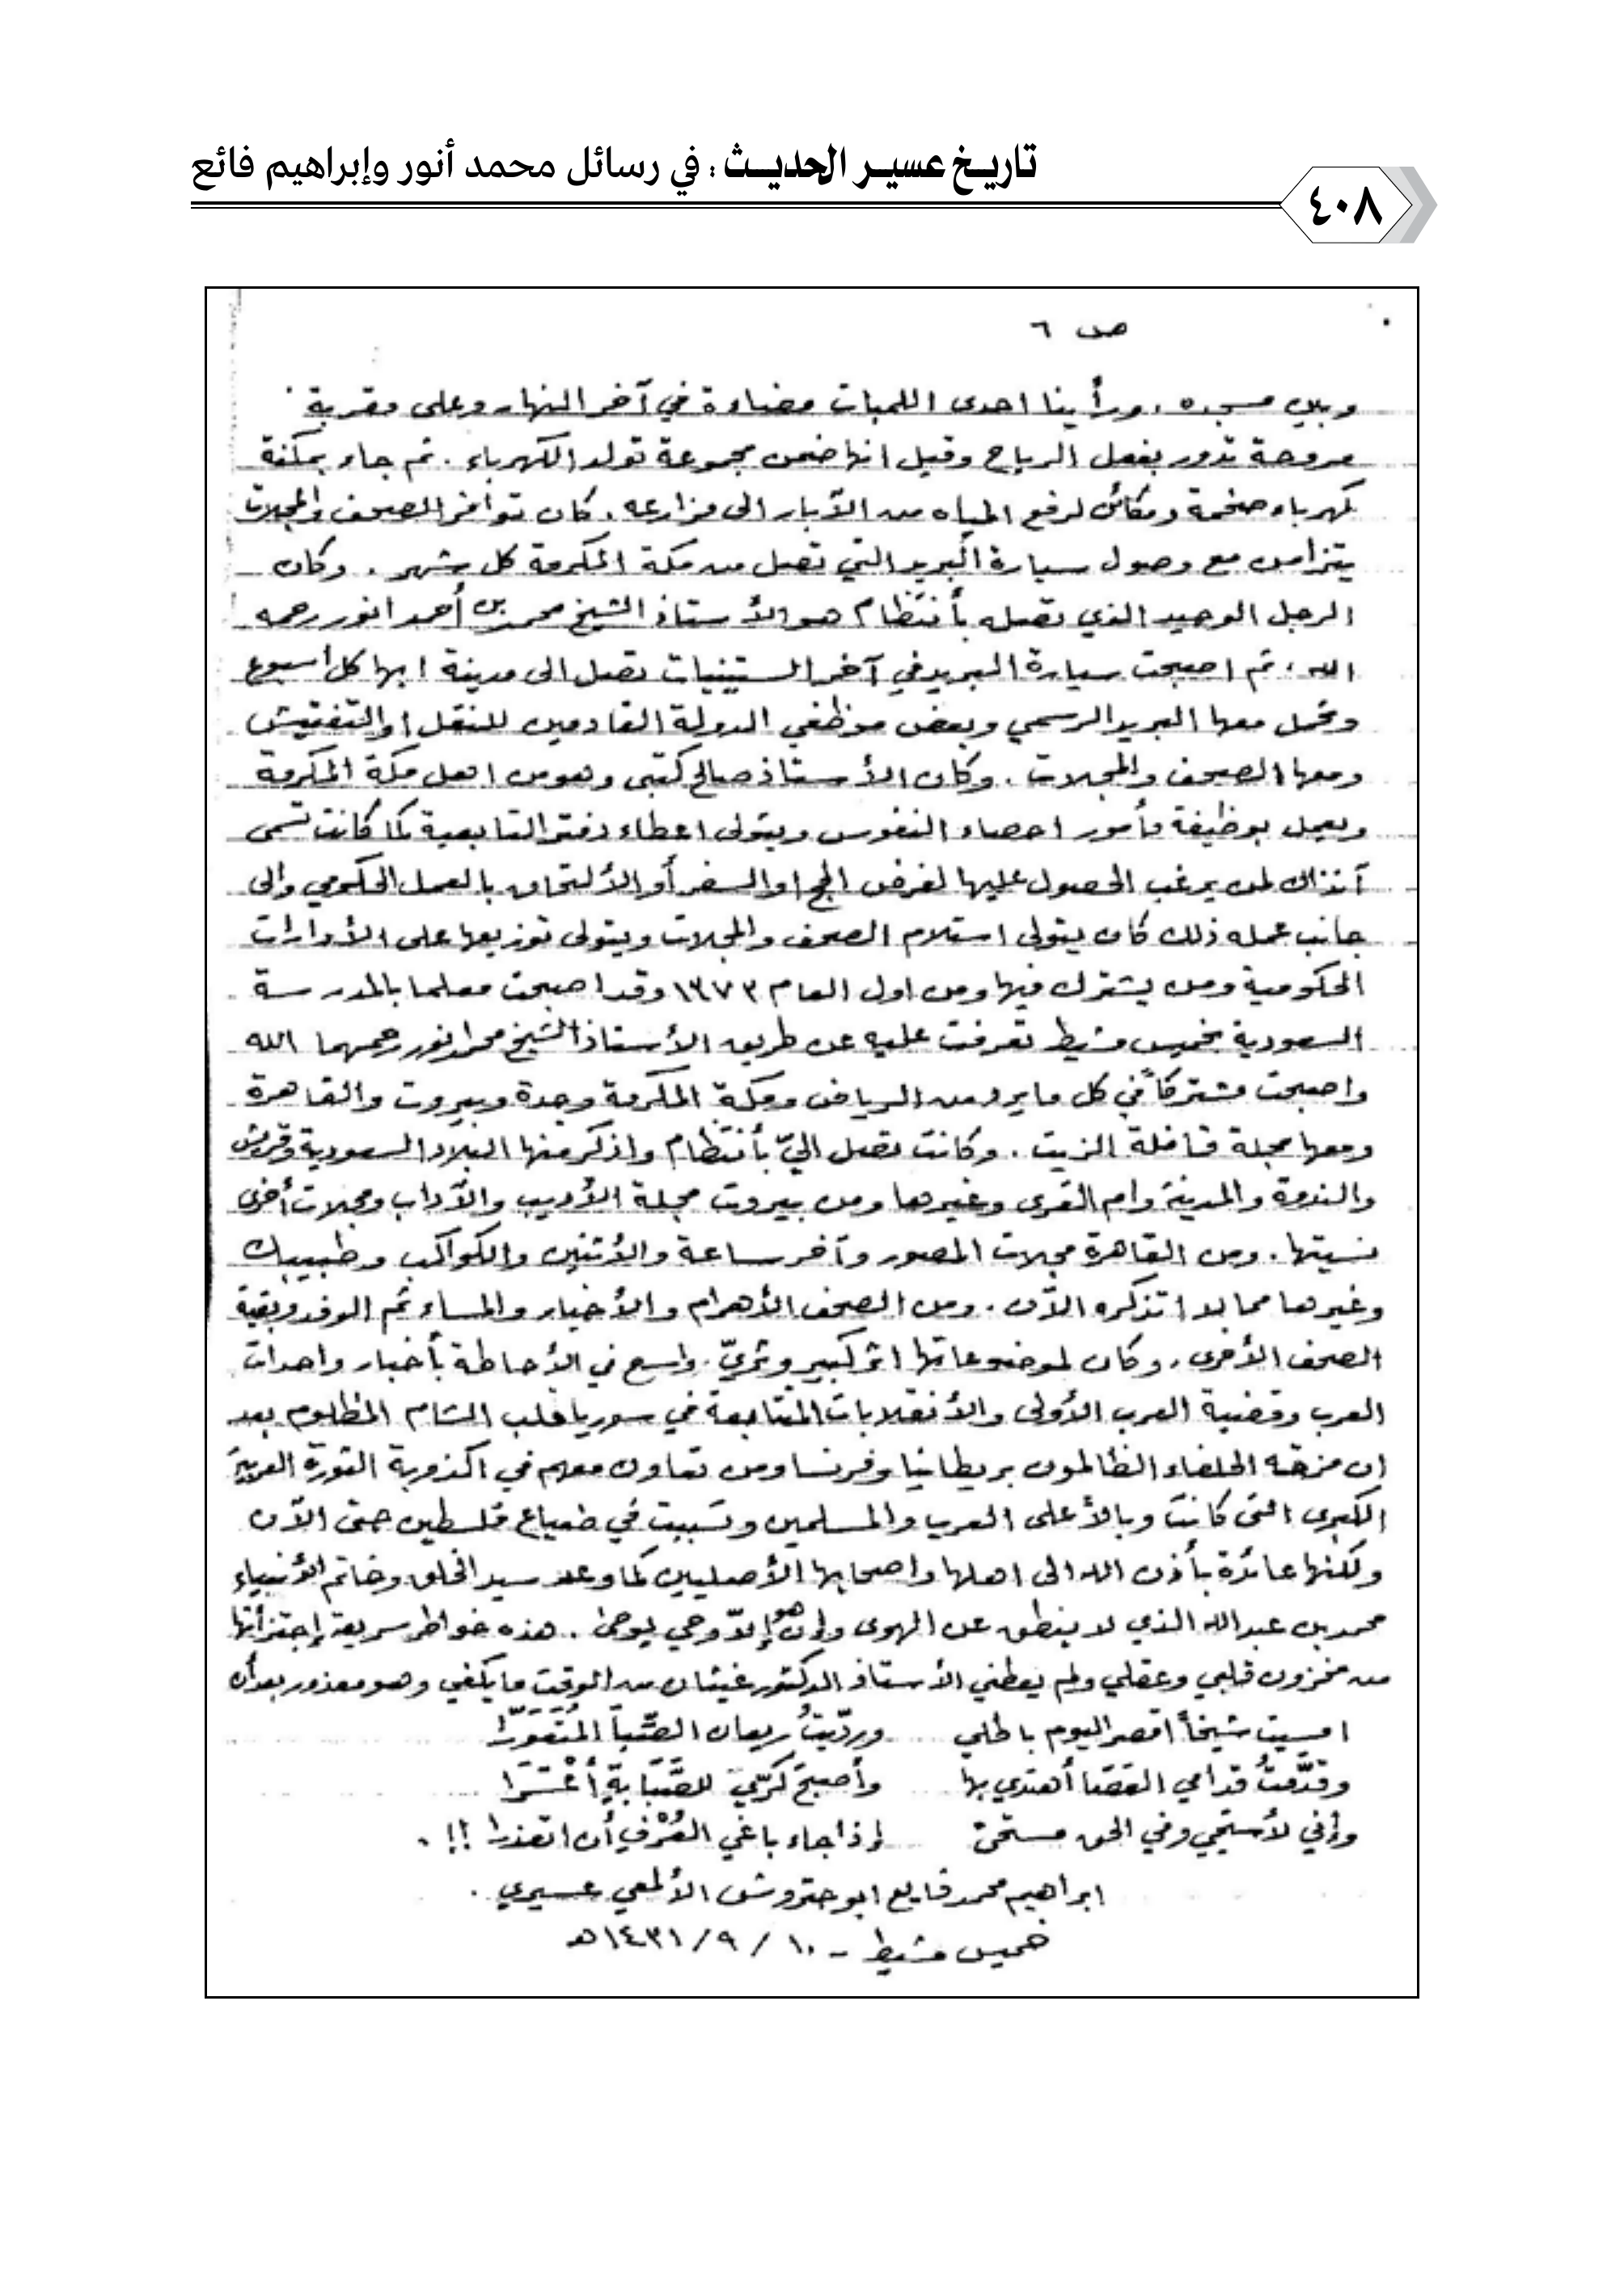 تاريخ عسير الحديث : في رسائل محمد أنور وإبراهيم فائع
٤٠٨
ص ٦
وبين مسجده . ورأينا احدى اللمبات مضاءة في آخر النهار وعلى مقربة
مروحة تدور بفعل الرياح وقيل انها ضمن مجموعة تولد الكهرباء . ثم جاء بمكنة
كهرباء ضخمة ومكائن لرفع المياه من الآبار الى مزارعه . كان توافر الصحف والمجلات
يتزامن مع وصول سيارة البريد التي تصل من مكة المكرمة كل شهر . وكان
الرجل الوحيد الذي تصله بأنتظام هو الأستاذ الشيخ محمد بن أحمد انور رحمه
الله ، ثم اصبحت سيارة البريد في آخر الستينيات تصل الى مدينة ابها كل اسبوع
وتحمل معها البريد الرسمي وبعض موظفي الدولة القادمين للنقل او التفتيش
ومعها الصحف والمجلات . وكان الأستاذ صالح كتبى وهو من اهل مكة المكرمة
ويعمل بوظيفة مأمور احصاء النفوس ويتولى اعطاء دفتر التابعية كما كانت تسمى
آنذاك لمن يرغب الحصول عليها لغرض الحج او السفر أو الألتحاق بالعمل الحكومي والى
جانب عمله ذلك كان يتولى استلام الصحف والمجلات ويتولى توزيعها على الأدارات
الحكومية ومن يشترك فيها ومن اول العام ١٣٧٣ وقد اصبحت معلما بالمدرسة
السعودية بخميس مشيط تعرفت عليه عن طريق الأستاذ الشيخ محمد انور رحمهما الله
واصبحت مشتركاً في كل ما يرد من الرياض ومكة المكرمة وجدة وبيروت والقاهرة
ومعها مجلة قافلة الزيت . وكانت تصل اليّ بأنتظام واذكر منها البلاد السعودية وقريش
والندوة والمدينة وام القرى وغيرها ومن بيروت مجلة الأديب والآداب ومجلات أخرى
نسيتها . ومن القاهرة مجلات المصور وآخر ساعة والأثنين والكواكب وطبيبك
وغيرها مما لا اتذكره الآن . ومن الصحف الأهرام والأخبار والمساء ثم الوفد وبقية
الصحف الأخرى . وكان لموضوعاتها اثر كبير وثريّ واسع في الأحاطة بأخبار واحداث
العرب وقضية العرب الأولى والأنقلابات المتتابعة في سوريا قلب الشام المظلوم بعد
ان مزقه الحلفاء الظالمون بريطانيا وفرنسا ومن تعاون معهم في اكذوبة الثورة العربية
الكبرى التى كانت وبالأ على العرب والمسلمين وتسببت في ضياع فلسطين حتى الآن
ولكنها عائدة بأذن الله الى اهلها واصحابها الأصليين كما وعد سيد الخلق وخاتم الأنبياء
محمد بن عبدالله الذي لا ينطق عن الهوى وإن هو إلاّ وحي يوحى . هذه خواطر سريعة إجتزأتها
من مخزون قلبي وعقلي ولم يعطني الأستاذ الدكتور غيثان من الوقت ما يكفي وهو معذور بعد أن
امسيت شيخاً اقصر اليوم باطلي ورديّتُ ريعان الصّبا المُتَقَوّرا
وقدّمتُ قدامي العَصَا أهتدي بها وأصبحَ كَرّيَ للصَّبَابةِ أعْسَرَا
وإني لأستحي وفي الحق مستحىً إذا جاء باغي العُرْفِ أن اتعذرا !! .
ابراهيم محمد فايع ابو حتروش الألمعي عسيري .
خميس مشيط - ١٠ / ٩ / ١٤٣١هـ